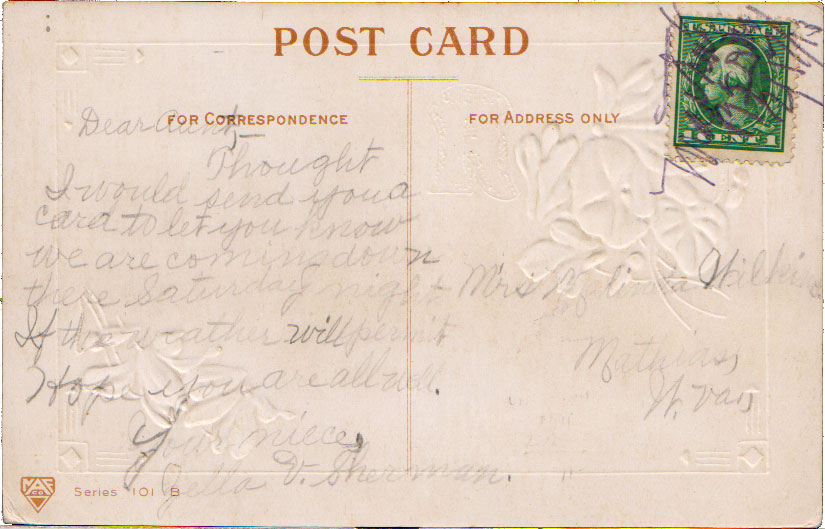 POST CARD
FOR CORRESPONDENCE
FOR ADDRESS ONLY
U.S. POSTAGE
1 CENT 1
Dear Aunt,
Thought
I would send you a
card to let you know
we are coming down
there Saturday night
If the weather will permit
Hope you are all well.
Your niece,
Zella V. Sherman.
Mrs Malinda Wilkins
Mathias,
W. Va,
Series 101 B